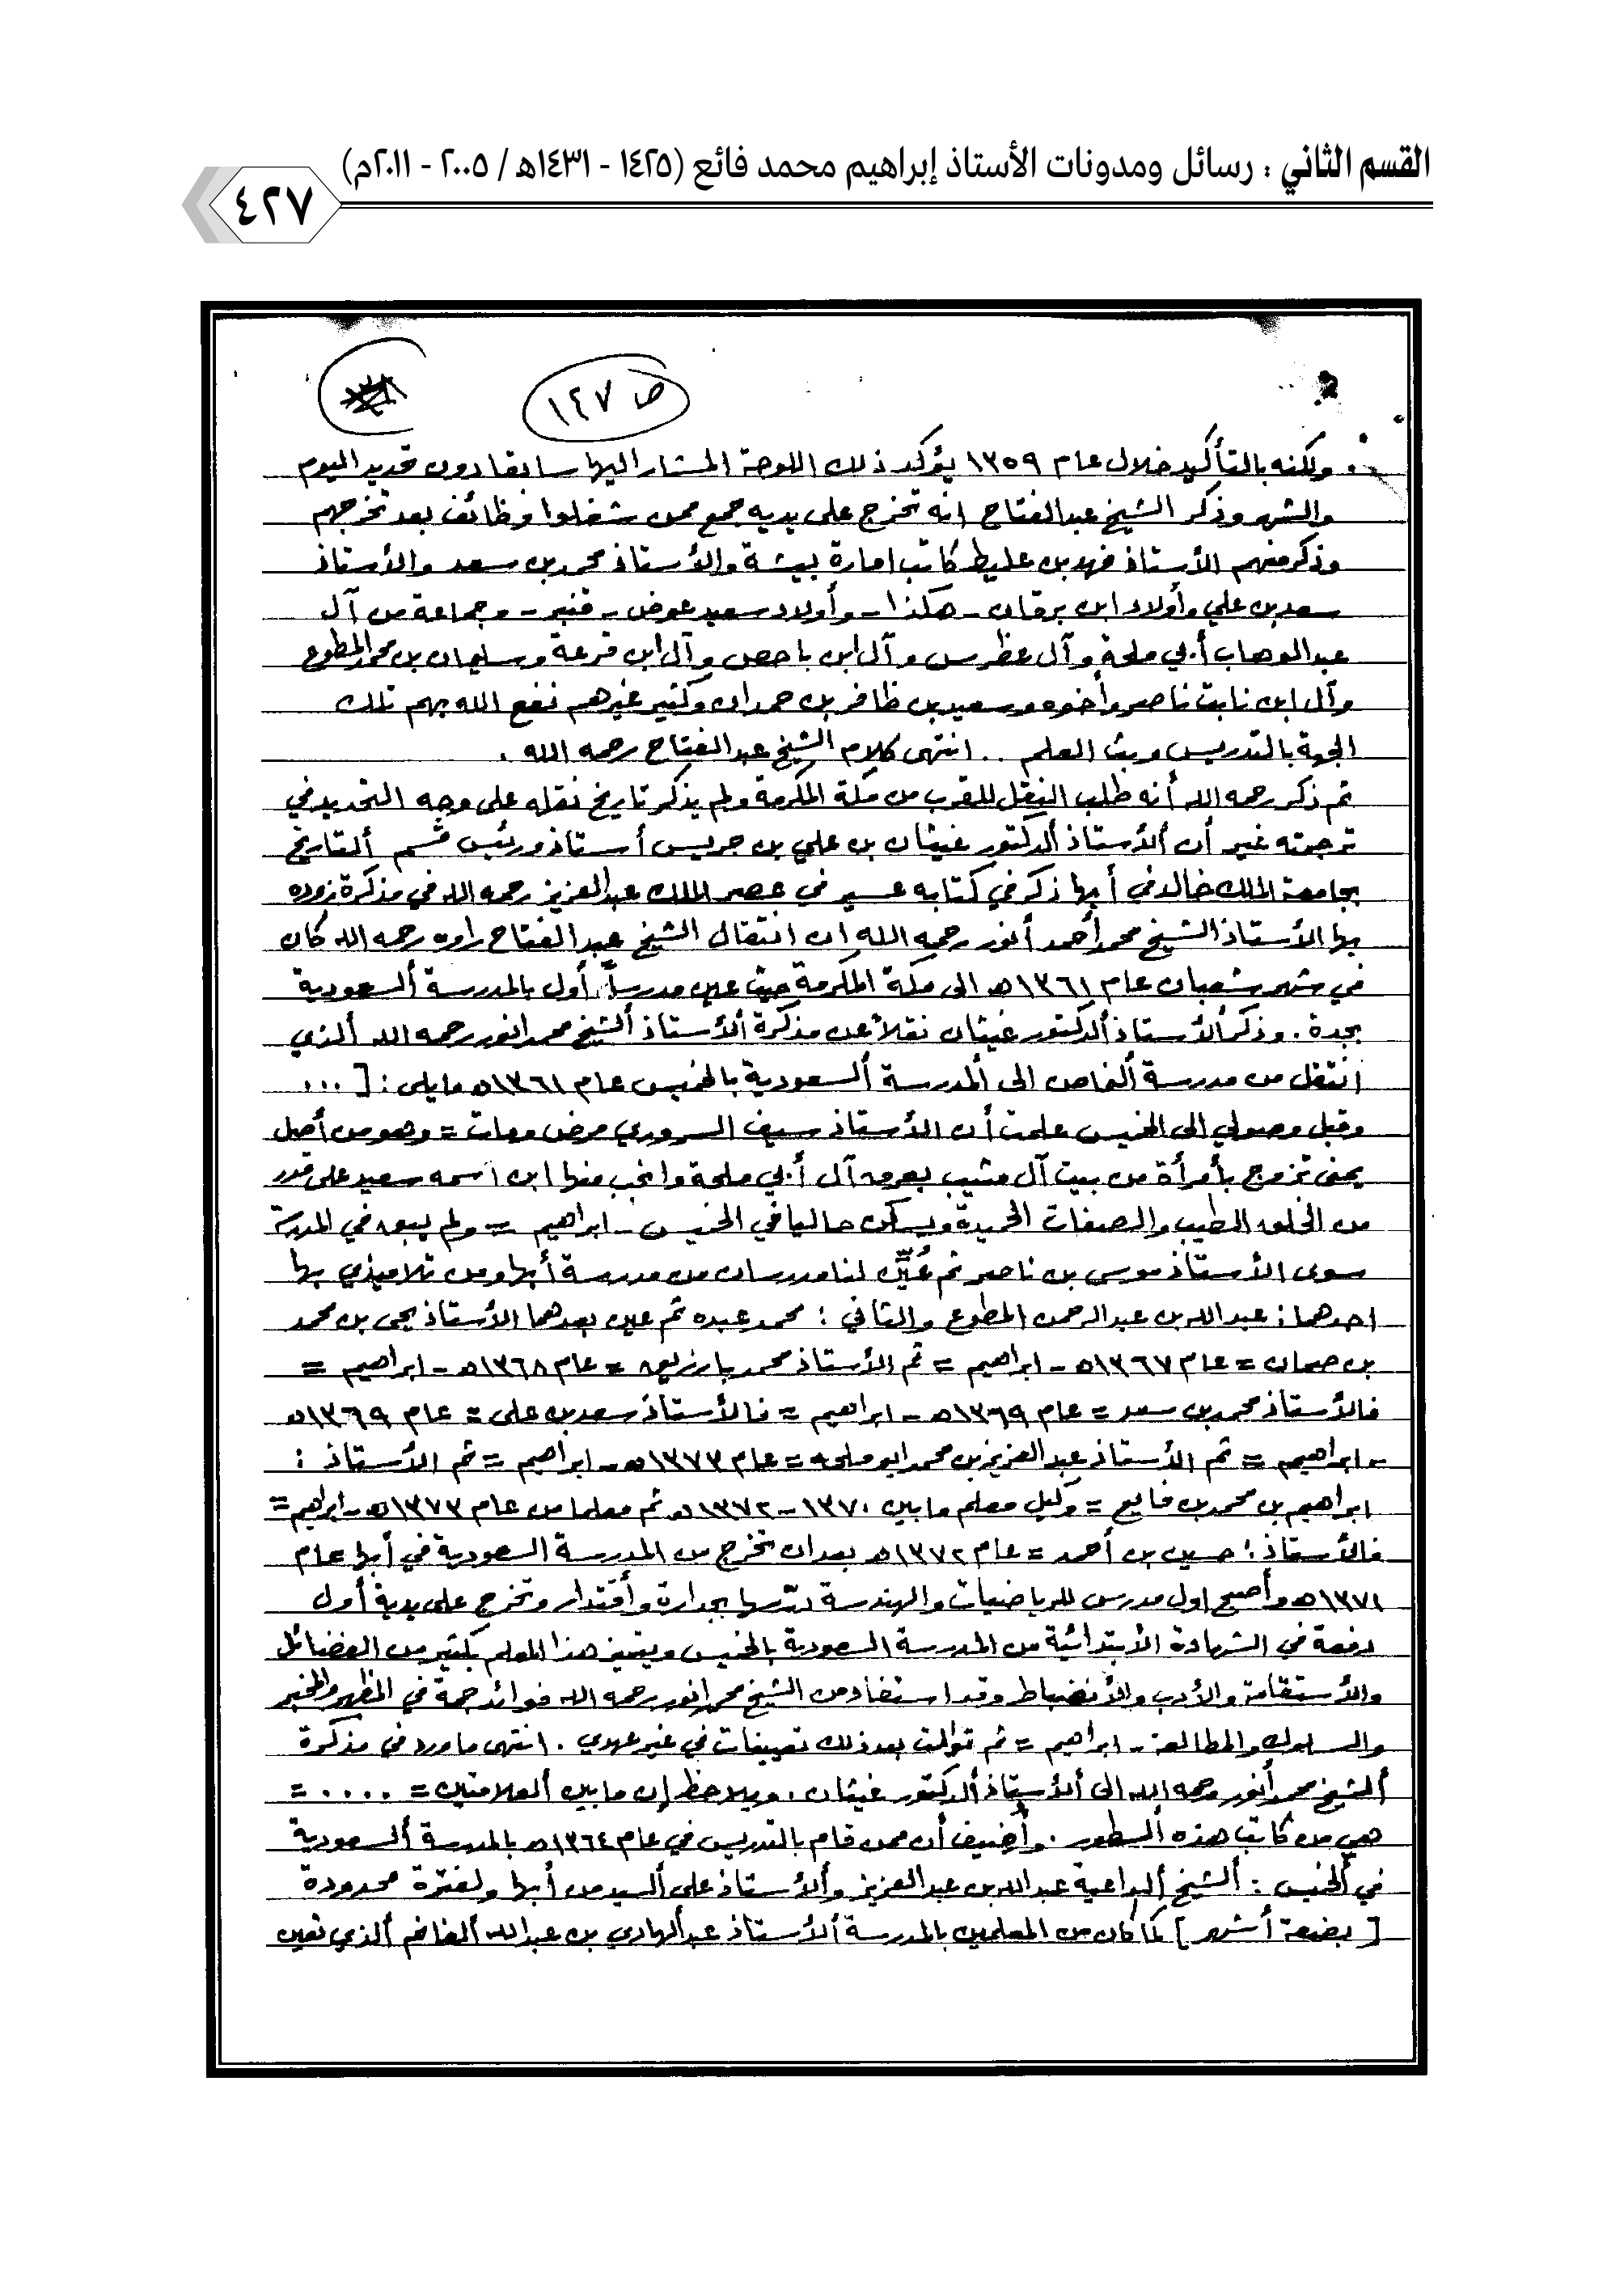 القسم الثاني : رسائل ومدونات الأستاذ إبراهيم محمد فائع (١٤٢٥ - ١٤٣١هـ / ٢٠٠٥ - ٢٠١١م)
٤٢٧
ص ١٤٧
ولكنه بالتأكيد خلال عام ١٣٥٩ يؤكد ذلك اللوحة المشار اليها سابقا دون تحديد اليوم
والشهر وذكر الشيخ عبدالفتاح انه تخرج على يديه جمع ممن شغلوا وظائف بعد تخرجهم
وذكر منهم الأستاذ فهد بن عليط كاتب امارة بيشة والأستاذ محمد بن سعد والأستاذ
سعد بن علي وأولاد ابن برقان - هكذا - وأولاد سعيد عوض - قنبر - وجماعة من آل
عبدالوهاب أبي ملحة وآل عظرس وآل ابن باحص وآل ابن قرعة وسليمان بن محمد المطوع
وآل ابن نابت ناصر وأخوه وسعيد بن ظافر بن حمدان وكثير غيرهم نفع الله بهم تلك
الجهة بالتدريس وبث العلم .. انتهى كلام الشيخ عبدالفتاح رحمه الله .
ثم ذكر رحمه الله أنه طلب النقل للقرب من مكة المكرمة ولم يذكر تاريخ نقله على وجه التحديد في
ترجمته غير أن ألأستاذ ألدكتور غيثان بن علي بن جريس أستاذ ورئيس قسم ألتاريخ
بجامعة الملك خالد في أبها ذكر في كتابه عسير في عصر الملك عبدالعزيز رحمه الله في مذكرة زوده
بها الأستاذ الشيخ محمد أحمد أنور رحمه الله ان انتقال الشيخ عبدالفتاح راوه رحمه الله كان
في شهر شعبان عام ١٣٦١هـ الى مكة المكرمة حيث عين مدرساً أول بالمدرسة ألسعودية
بجدة . وذكر ألأستاذ ألدكتور غيثان نقلاً عن مذكرة ألأستاذ ألشيخ محمد انور رحمه الله ألذي
انتقل من مدرسة ألنماص الى ألمدرسة ألسعودية بالخميس عام ١٣٦١هـ مايلي : [ ...
وقبل وصولي الى الخميس علمت أن الأستاذ سيف السروري مرض ومات = وهو من أصل
يمني تزوج بأمرأة من بيت آل مشيب بعرق آل أبي ملحة وانجب منها ابن اسمه سعيد على قدر
من الخلق الطيب والصفات الحميدة ويسكن حاليا في الخميس - ابراهيم = ولم يبق في المدرسة
سوى الأستاذ موسى بن ناصر ثم عُيِّن لنا مدرسان من مدرسة أبها ومن تلاميذي بها
احدهما : عبدالله بن عبدالرحمن المطوع والثاني : محمد عبده ثم عين بعدهما الأستاذ يحيى بن محمد
بن صمان = عام ١٣٦٧هـ - ابراهيم = ثم الأستاذ محمد بارزيق = عام ١٣٦٨هـ - ابراهيم =
فالأستاذ محمد بن سعد = عام ١٣٦٩هـ - ابراهيم = فالأستاذ سعد بن على = عام ١٣٦٩هـ
- ابراهيم = ثم الأستاذ عبدالعزيز بن محمد ابو ملحه = عام ١٣٧٣هـ - ابراهيم = ثم الأستاذ :
ابراهيم بن محمد بن فايع = وكيل معلم مابين ١٣٧٠ - ١٣٧٢هـ ثم معلما من عام ١٣٧٣هـ - ابراهيم =
فالأستاذ : حسين بن أحمد = عام ١٣٧٢هـ بعد ان تخرج من المدرسة السعودية في أبها عام
١٣٧١هـ وأصبح اول مدرس للرياضيات والهندسة درّسها بجدارة وأقتدار وتخرج على يدية أول
دفعة في الشهادة الأبتدائية من المدرسة السعودية بالخميس ويتميز هذا المعلم بكثير من الفضائل
والأستقامة والأدب والأنضباط وقد استفاد من الشيخ محمد انور رحمه الله فوائد جمة في المظهر والمخبر
والسلوك والمطالعة - ابراهيم = ثم توالت بعد ذلك تعيينات في غير عهدي . انتهى ماورد في مذكرة
ألشيخ محمد أنور رحمه الله الى ألأستاذ ألدكتور غيثان . ويلاحظ إن مابين ألعلامتين = .... =
هي من كاتب هذه ألسطور . وأضيف أن ممن قام بالتدريس في عام ١٣٦٤هـ بالمدرسة ألسعودية
في ألخميس : ألشيخ ألداعية عبدالله بن عبدالعزيز وألأستاذ على ألسيد من أبها ولفترة محدودة
[ بضعة أشهر ] كما كان من المعلمين بالمدرسة ألأستاذ عبدألهادي بن عبدالله ألغانم ألذي تعين